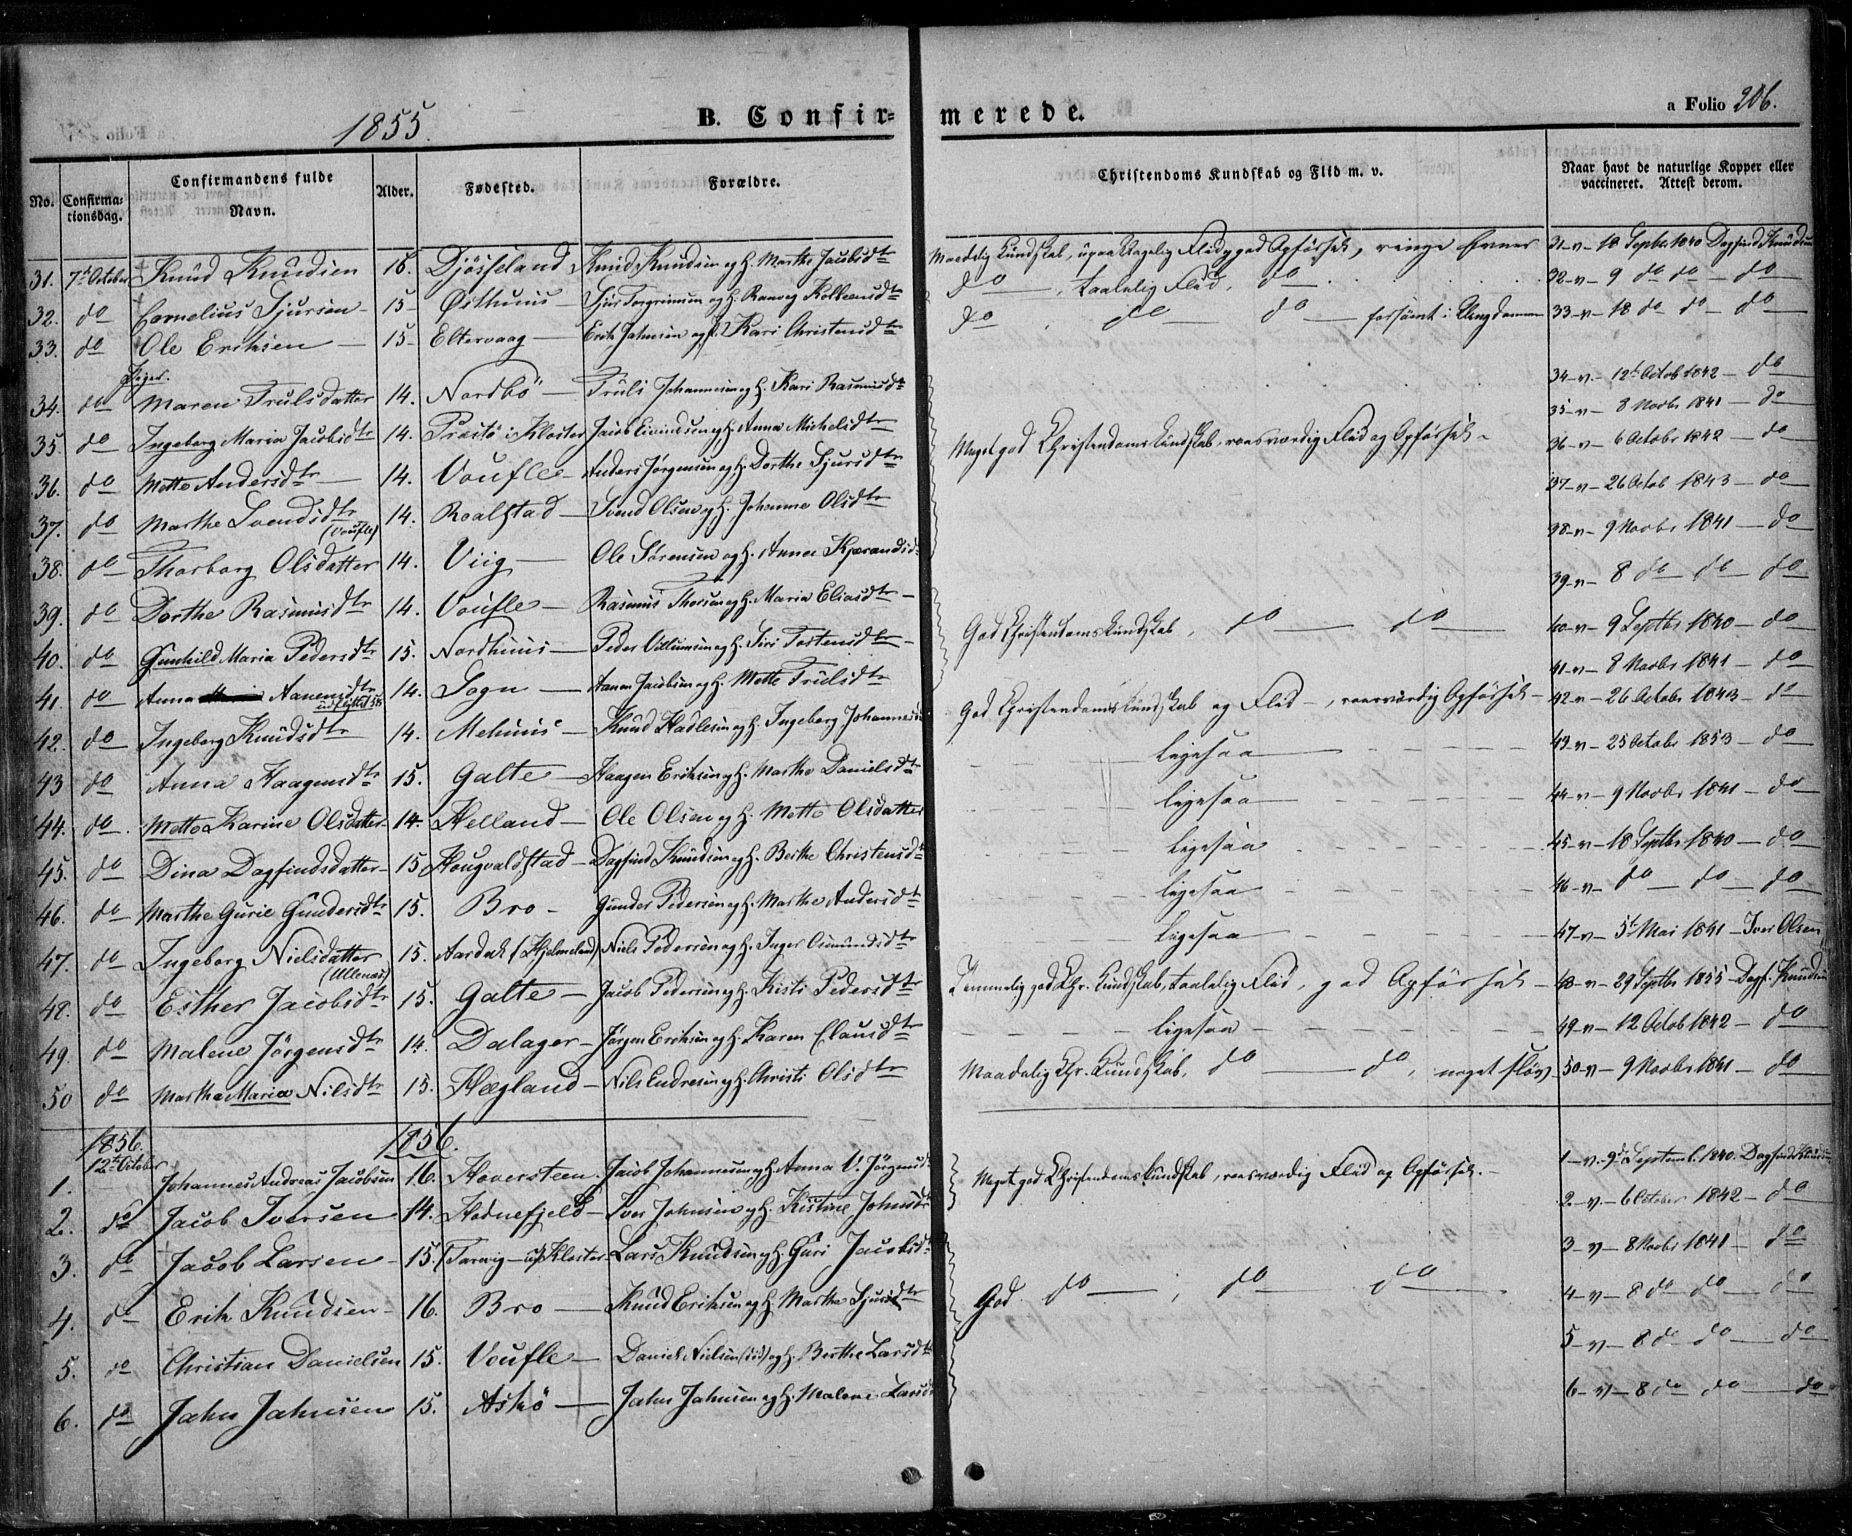 1855.
B. Confir=
merede.
a Folio 206.
No.
Confirma=
tionsdag.
Confirmandens fulde
Navn.
Alder.
Fødested.
Forældre.
Christendoms Kundskab og Flid m. v.
Naar havt de naturlige Kopper eller
vaccineret. Attest derom.
31. 7de October Knud Knudsen 16. Djösseland Knud Knudsen og H. Marthe Jacobsdtr Maadelig Kundskab, Flid og god Opførsel, ringe Evner 31-v- 18 Septbr 1840 Dagfind Knudsen
32. do Cornelius Sjursen 15 Østhuus Sjur Torgrimsen og H. Ranveg do taalelig Flid, do 32-v- 9 do do - do
33. do Ole Eriksen 15 Eltervaag Erik Jahnsen og H. Kari Christensdtr do do do forsømt i Ungdommen 33-v- 18 do do - do
Piger.
34. do Maren Trulsdatter 14. Nordbö Truls Johannesen og H. Kari Rasmusdtr 34-v- 12te Octob 1842 - do
35. do Ingeborg Maria Jacobsdtr 14. i Kloster Jacob Eivindsen og H. Anna Michelsdtr 35-v- 8 Novbr 1841 - do
36. do Mette Andersdtr 14. Voufle Anders Jørgensen og H. Dorthe Sjursdtr Meget god Christendoms Kundskab, roesværdig Flid og Opførsel 36-v- 6 Octobr 1842 - do
37. do Marthe Svendsdtr 14. Roalstad Svend Olsen og H. Johanna Olsdtr 37-v- 26 Octob 1843 - do
(Voufle)
38. do Thorborg Olsdatter 14. Viig Ole Sørensen og H. Anna 38-v- 9 Novbr 1841 - do
39. do Dorthe Rasmusdtr 14. Voufle Rasmus Thorsen og H. Maria Eliasdtr 39-v- 8 do do do
40. do Gunhild Maria Pedersdtr 15. Nordhuus Peder Villumsen og H. Siri Tostensdtr God Christendoms Kundskab, do do 40-v- 9 Septbr 1840 - do
41. do Anna Aanensdtr 14. Sogn Aanen Jacobsen og H. Mette Trulsdtr 41-v- 8 Novbr 1841 - do
42. do Ingeborg Knudsdtr 14. Mehuus Knud Hadlesen og H. Ingeborg God Christendoms Kundskab og Flid, roesværdig Opførsel 42-v- 26 Octobr 1843 - do
43 do Anna Haagensdtr 15. Galte Haagen Eriksen og H. Marthe Danielsdtr ligesaa 43-v- 25 Octobr 1853 - do
44. do Mette Karine Olsdatter 14. Helland Ole Olsen og H. Mette Olsdatter ligesaa 44-v- 9 Novbr 1841 - do
45. do Dina Dagfindsdatter 15 Hougvaldstad Dagfind Knudsen og H. Berthe Christensdtr ligesaa 45-v- 18 Septbr 1840 - do
46. do Marthe Gurie Gundersdtr 15. Bro Gunder Pedersen og H. Marthe Andersdtr ligesaa 46-v- do do do
47. do Ingeborg Nielsdatter 15. Aardal (Hjelmeland) Niels Pedersen og H. Inger Osmundsdtr ligesaa 47-v- 5te Mai 1841 - Iver Olsen
48. do Esther Jacobsdtr 15. Galte Jacob Pedersen og H. Kisti Pedersdtr Temmelig god Chr. Kundskab, taalelig Flid, god Opførsel 48-v- 29 Septbr 1855 Dagf. Knudsen
49. do Malene Jörgensdtr 14. Dalager Jørgen Eriksen og H. Karen Clausdtr ligesaa 49-v- 12 Octob 1842 - do
50 do Martha Maria Nilsdtr 15. Hægland Nils Endresen og H. Christi Olsdtr Maadelig Chr. Kundskab, do do, noget sløv 50-v- 9 Novbr 1841 - do
1856. 1856.
1. 12te October Johannes Andreas Jacobsen 16. Haversteen Jacob Johannesen og H. Anna V. Jörgensdtr Meget god Christendoms Kundskab, roesværdig Flid og Opførsel 1-v- 9de Septemb. 1840. Dagfind Knudsen
2. do Jacob Iversen 14. Hodnefjeld Iver Johnsen og H. Kistine Johnsdtr 2-v- 6 October 1842 - do
3. do Jacob Larsen 15. Kloster Lars Knudsen og H. Guri Jacobsdtr 3-v- 8 Novbr 1841 - do
4. do Erik Knudsen 16. Bro Knud Eriksen og H. Marthe Sjursdtr God do, do do 4-v- 8 do do do
5. do Christian Danielsen 15. Voufle Daniel Nielsen og H. Berthe Larsdtr 5-v- 8 do do do
6. do Jahn Jahnsen 15. Askö Jahn Jahnsen og H. Malene Larsdtr 6-v- 8 do do do